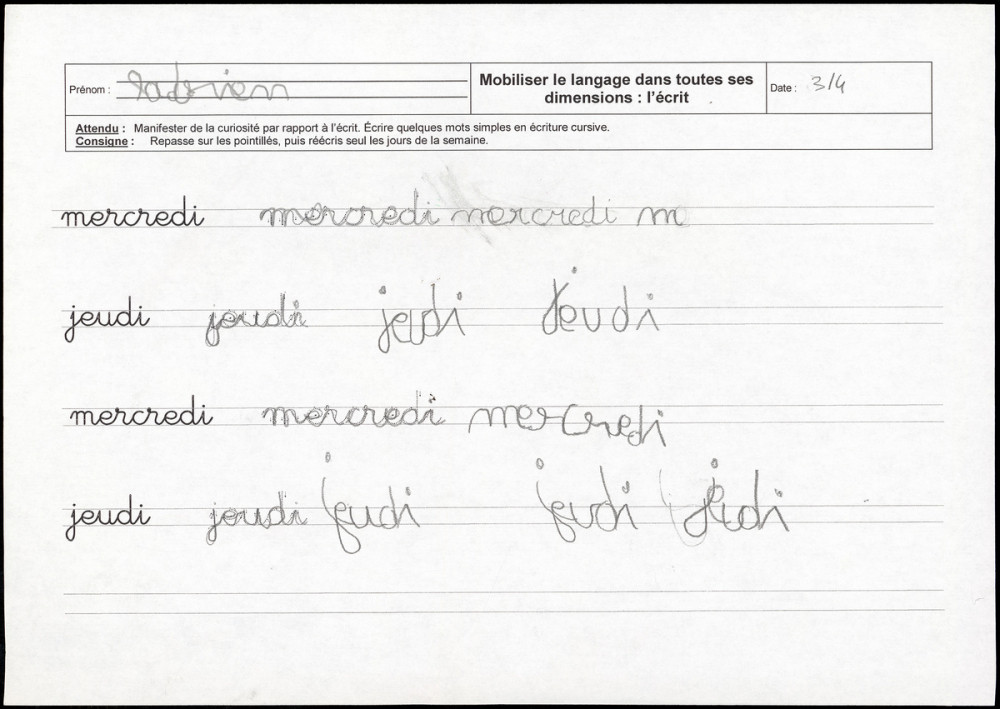 Prénom :
Mobiliser le langage dans toutes ses
dimensions : l'écrit
Date : 3/4
Attendu : Manifester de la curiosité par rapport à l'écrit. Écrire quelques mots simples en écriture cursive.
Consigne : Repasse sur les pointillés, puis réécris seul les jours de la semaine.
mercredi mercredi mercredi m
jeudi jeudi jeudi jeudi
mercredi mercredi mercredi
jeudi jeudi jeudi jeudi jeudi